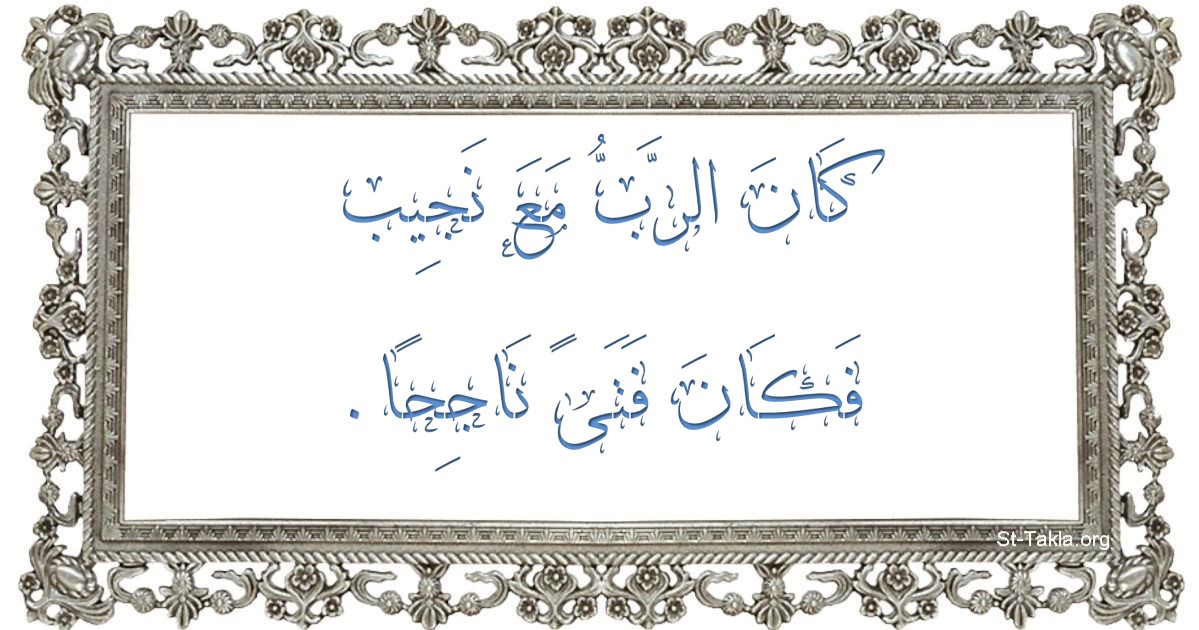 كَانَ الرَّبُّ مَعَ نَجِيِب
فَكَانَ فَتَىً نَاجِحًا.
St-Takla.org